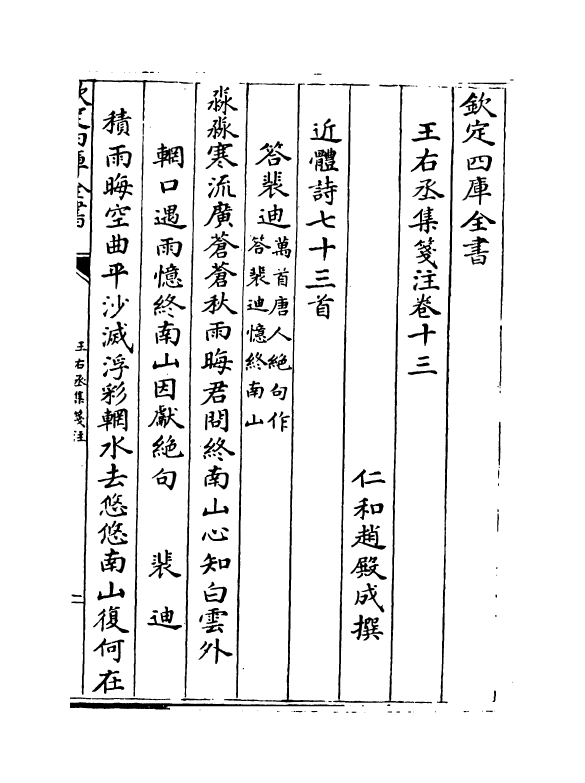 欽定四庫全書
王右丞集箋注卷十三
仁和趙殿成撰
近體詩七十三首
答裴迪萬首唐人絶句作答裴迪憶終南山
淼淼寒流廣蒼蒼秋雨晦君問終南山心知白雲外
輞口遇雨憶終南山因獻絶句　裴迪
積雨晦空曲平沙滅浮彩輞水去悠悠南山復何在
欽定四庫全書
王右丞集箋注